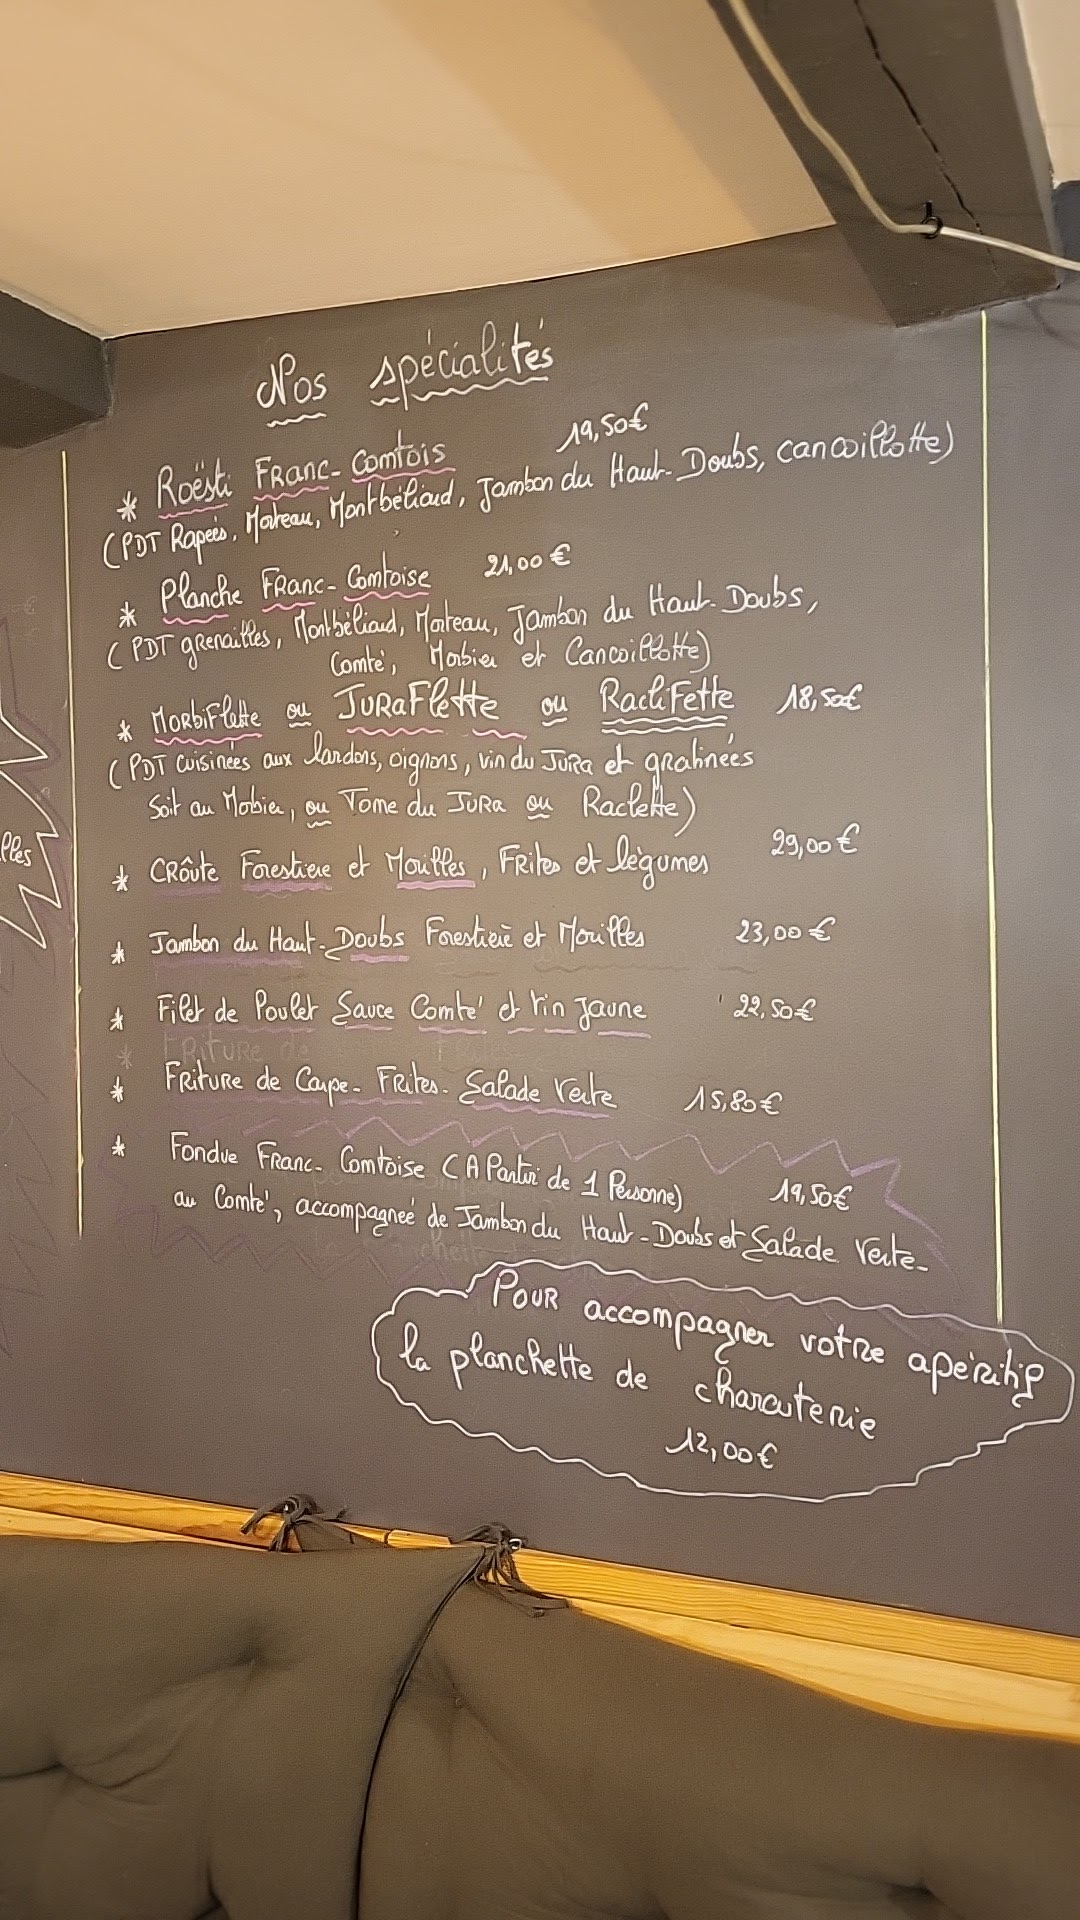 Nos spécialités
* Roësti Franc-Comtois 19,50€
(PDT Rapées, Morteau, Montbéliard, Jambon du Haut-Doubs, cancoillotte)
* Planche Franc-Comtoise 21,00€
(PDT grenailles, Montbéliard, Morteau, Jambon du Haut-Doubs,
Comté, Morbier et Cancoillotte)
* Morbiflette ou JuraFlette ou RacliFette 18,50€
(PDT cuisinées aux lardons, oignons, vin du Jura et gratinées
Soit au Morbier, ou Tome du Jura ou Raclette)
* Croûte Forestière et Morilles, Frites et légumes 29,00€
* Jambon du Haut-Doubs Forestière et Morilles 23,00€
* Filet de Poulet Sauce Comté et Vin Jaune 22,50€
* Friture de Carpe - Frites - Salade Verte 15,80€
* Fondue Franc-Comtoise (A Partir de 1 Personne) 19,50€
au Comté, accompagneé de Jambon du Haut-Doubs et Salade Verte -
Pour accompagner votre apéritif
la planchette de charcuterie
12,00€